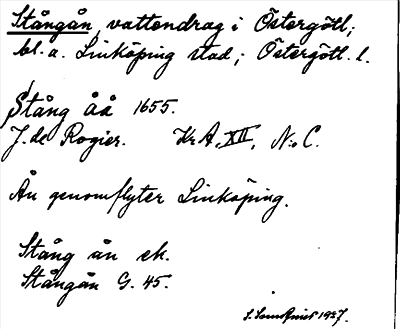 Stångån, vattendrag i Östergötl;
bl. a. Linköping stad; Östergötl. l.
Stång åå 1655.
J. de Rogier. Kr A, XII, N:o C.
Ån genomflyter Linköping.
Stång ån ek.
Stångån G. 45.
1927.